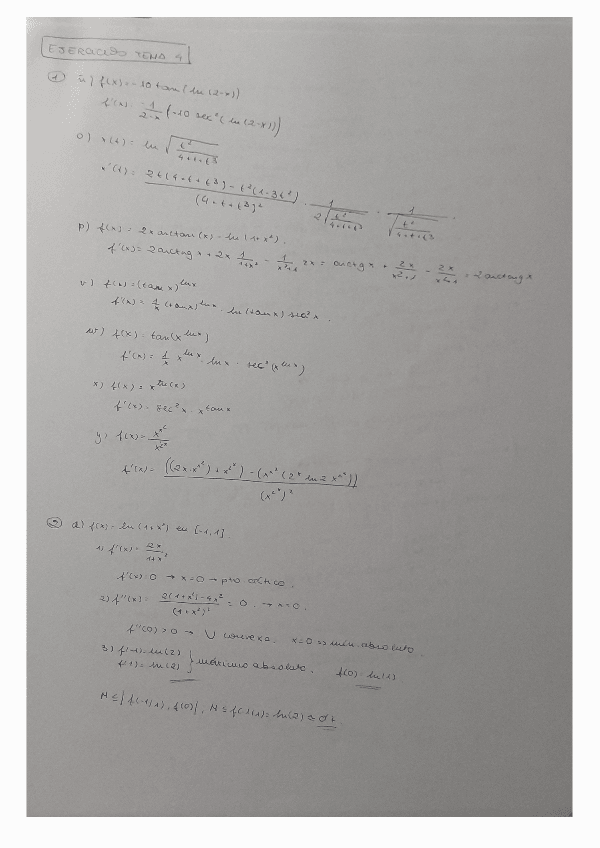 EJERCICIO TEMA 4
① ñ) f(x) = -10 tan (ln(2-x))
f'(x) = -1/(2-x) (-10 sec² (ln(2-x)))
o) x(t) = ln √(t²/(4+t+t³))
x'(t) = (2t(4+t+t³) - t²(1-3t²))/(4+t+t³)² · 1/(2√(t²/(4+t+t³))) · 1/√(t²/(4+t+t³)).
p) f(x) = 2x arctan(x) - ln(1+x²).
f'(x) = 2 arctng x + 2x 1/(1+x²) - 1/(x²+1) 2x = arctg x + 2x/(x²+1) - 2x/(x²+1) = 2 arctng x
v) f(x) = (tan x)^(ln x)
f'(x) = 1/x (tan x)^(ln x) · ln(tan x) sec² x.
w) f(x) = tan(x^(ln x))
f'(x) = 1/x x^(ln x) · ln x · sec² (x^(ln x))
x) f(x) =
f'(x) = sec² x · x^(tan x)
y) f(x) = x^(x²)/x^(2^x)
f'(x) = ((2x·x^(x²)) + x^(2^x)) - (x^(x²) (2^x ln 2 x^(2^x)))/(x^(2^x))²
② d) f(x) = ln(1+x²) en [-1,1]
1) f'(x) = 2x/(1+x²)
f'(x) = 0 → x=0 → pto crítico.
2) f''(x) = (2(1+x²) - 4x²)/(1+x²)² = 0. → x=0.
f''(0) > 0 → ∪ convexa. x=0 => mín. absoluto.
3) f(-1) = ln(2)
f(1) = ln(2) } máximo absoluto. f(0) = ln(1)